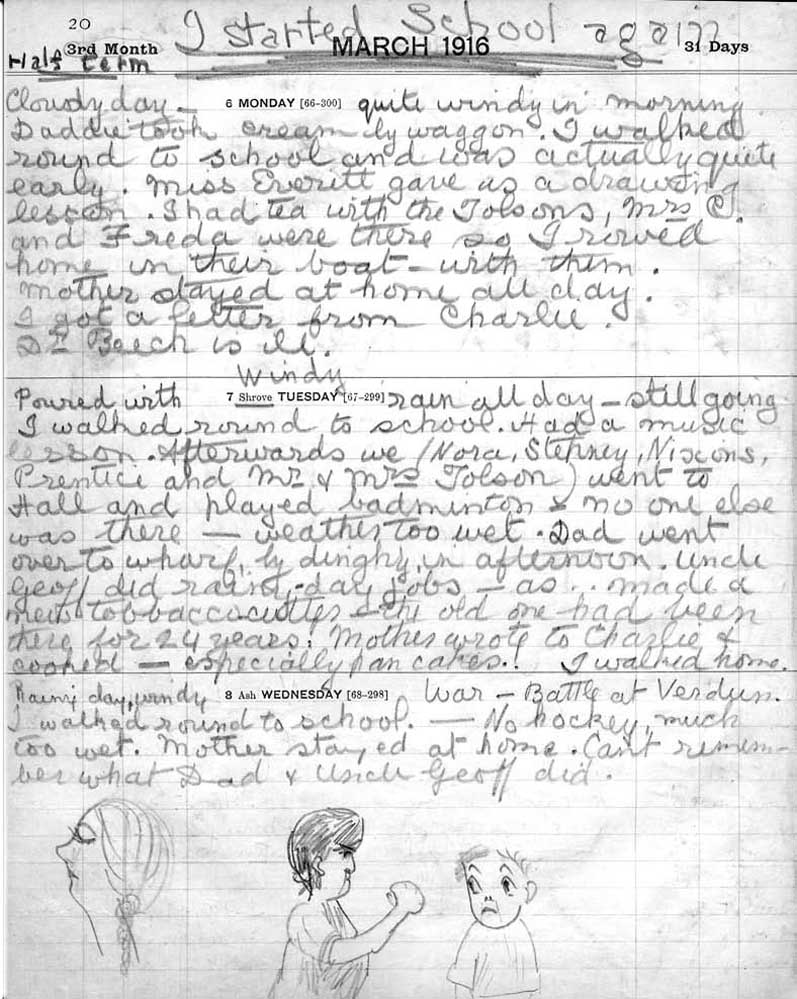 20
I started School again
3rd Month MARCH 1916 31 Days
Half term
Cloudy day - 6 MONDAY [66-300] quite windy in morning
Daddie took cream by waggon. I walked
round to school and was actually quite
early. Miss Everitt gave us a drawing
lesson. I had tea with the Tolsons, Mrs C.
and Freda were there so I rowed
home in their boat - with them.
Mother stayed at home all day.
I got a letter from Charlie.
Dr Beech is ill.
Windy
Poured with 7 Shrove TUESDAY [67-299] rain all day - still going
I walked round to school. Had a music
lesson. Afterwards we (Nora, Stephney, Nixons,
Prentice and Mr & Mrs Tolson) went to
Hall and played badminton & no one else
was there - weather too wet. Dad went
over to wharf, by dinghy, in afternoon. Uncle
Geoff did rainy-day jobs - as .. made a
new tobbacco - the old one had been
there for 24 years. Mother wrote to Charlie &
cooked - especially pancakes.! I walked home.
Rainy day, windy 8 Ash WEDNESDAY [68-298] War - Battle at Verdun.
I walked round to school. - No hockey, much
too wet. Mother stayed at home. Can't remem-
ber what Dad & Uncle Geoff did.